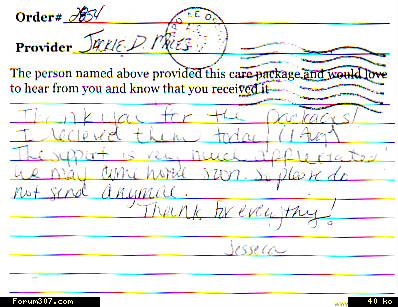 Order# 2854
Provider Jackie D. Miles
The person named above provided this care package and would love
to hear from you and know that you received it
Thank you for the packages!
I recieved them today! (1 Aug)
The support is very much appreciated!
we may come home soon. so please do
not send anymore.
Thanks for everything!
Jesseca
Forum307.com
40 ko